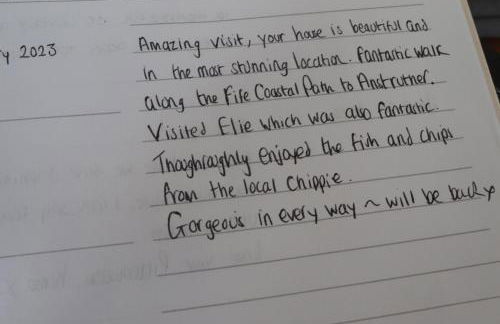 y 2023
Amazing visit, your house is beautiful and
in the most stunning location. Fantastic walk
along the Fife Coastal Path to Anstruther.
Visited Elie which was also fantastic.
Thoughroughly enjoyed the fish and chips
from the local chippie.
Gorgeous in every way ~ will be back x